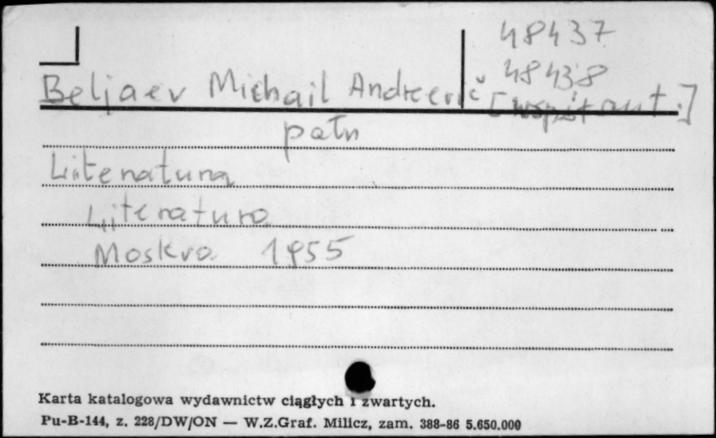 48437
48438
Beljaev Michail Andreevič [współaut.]
patrz
Literatura
Literatura
Moskva 1955
Karta katalogowa wydawnictw ciągłych i zwartych.
Pu-B-144, z. 228/DW/ON — W.Z.Graf. Milicz, zam. 388-86 5.650.000